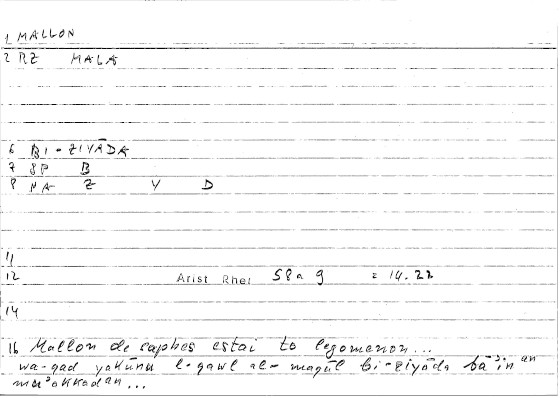 1 MALLON
2 RZ MALA
6 BI-ZIYĀDA
7 SP B
8 NA Z Y D
11
12 Arist Rhet 58a9 = 14.22
14
16 Mallon de saphes estai to legomenon...
wa-qad yakūnu l-qawl al-maqūl bi-ziyāda bāʾin an
muʾakkadan...